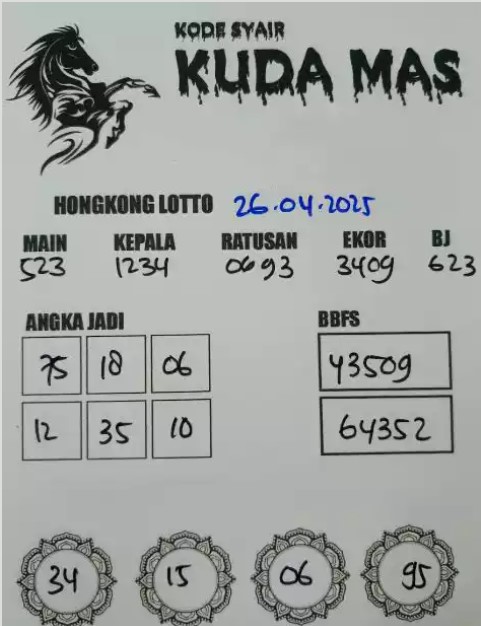 KODE SYAIR
KUDA MAS
HONGKONG LOTTO 26.04.2025
MAIN KEPALA RATUSAN EKOR BJ
523 1234 0693 3409 623
ANGKA JADI BBFS
75 18 06 43509
12 35 10 64352
34 15 06 95